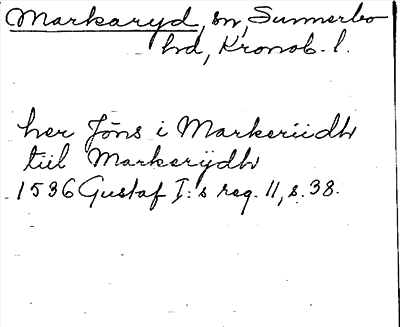 Markaryd, sn, Sunnerbo
hd, Kronob. l.
her Jöns i Markeriidh
tiil Markerÿdh
1536 Gustaf I:s reg. 11, s. 38.